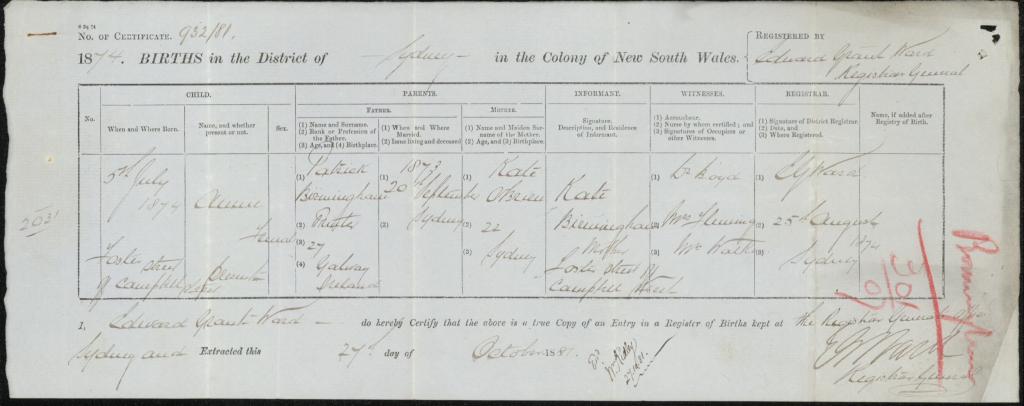 No. of Certificate. 932/81.
1874. BIRTHS in the District of Sydney in the Colony of New South Wales.
REGISTERED BY
Edward Grant Ward
Registrar General
CHILD.
PARENTS.
INFORMANT.
WITNESSES.
REGISTRAR.
Name, if added after Registry of Birth.
No.
When and Where Born.
Name, and whether present or not.
Sex.
FATHER.
(1) Name and Surname.
(2) Rank or Profession of the Father.
(3) Age, and (4) Birthplace.
(1) When and Where Married.
(2) Issue living and deceased
MOTHER.
(1) Name and Maiden Surname of the Mother.
(2) Age, and (3) Birthplace.
Signature, Description, and Residence of Informant.
(1) Accoucheur.
(2) Nurse by whom certified; and
(3) Signatures of Occupiers or other Witnesses.
(1) Signature of District Registrar.
(2) Date, and
(3) Where Registered.
2031
5th July
1874
Foster Street
off Campbell Street
Annie
Female
(1) Patrick
Birmingham
(2) Printer
(3) 27
(4) Galway
Ireland
(1) 1873
20th September
Sydney
(2)
(1) Kate
O'Brien
(2) 22
(3) Sydney
Kate
Birmingham
Mother
Foster Street off
Campbell Street
(1) Dr Boyd
(2) Mrs Fleming
(3)
(1) EG Ward
(2) 25th August
1874
(3) Sydney
I, Edward Grant Ward do hereby Certify that the above is a true Copy of an Entry in a Register of Births kept at the Registrar General Office
Sydney and Extracted this 27th day of October 1881.
EG Ward
Registrar General
27.10.81